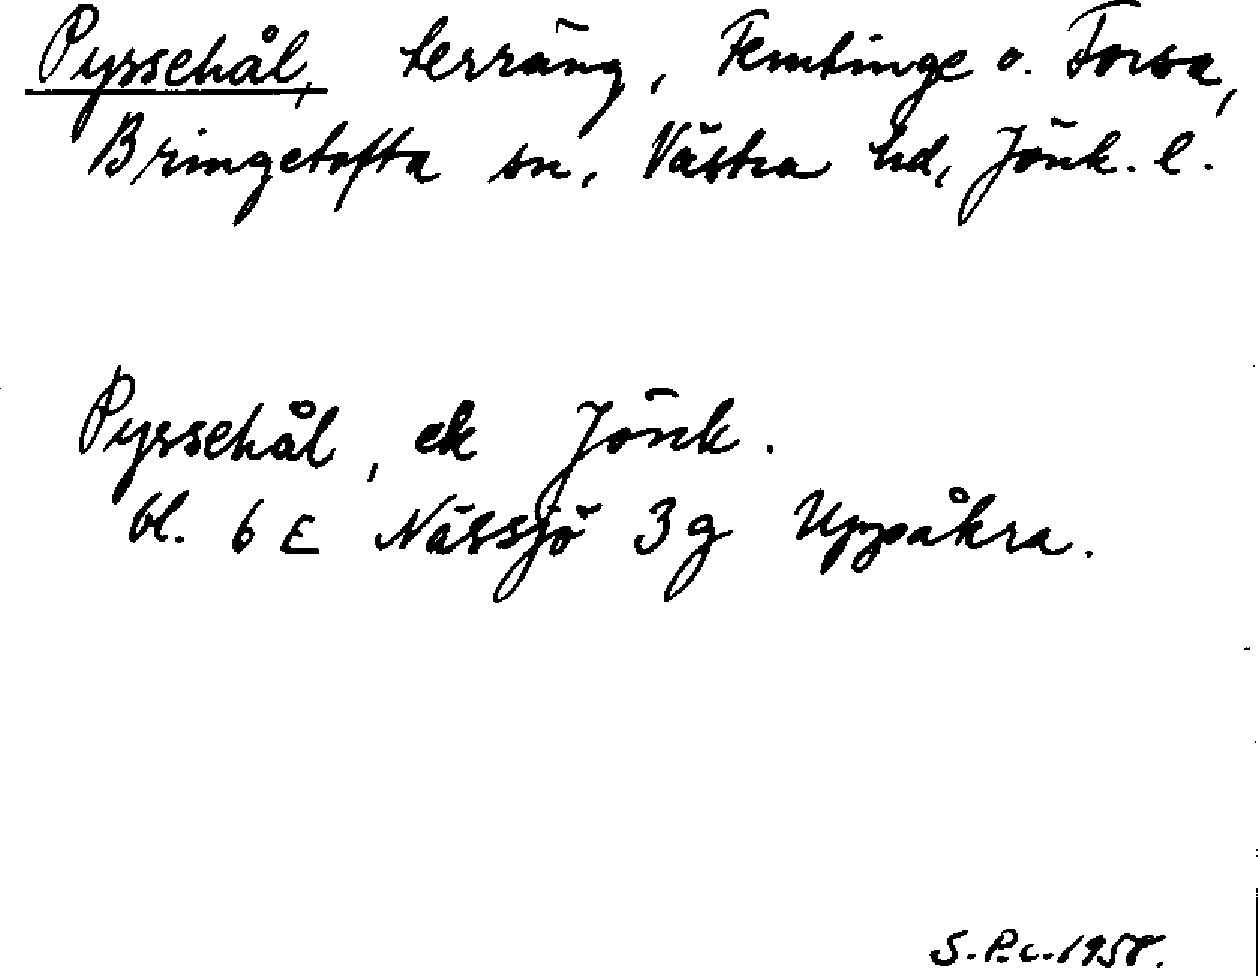 Pyrsehål, terräng, Femtinge o. Forsa,
Bringetofta sn, Västra hd, Jönk. l.
Pyrsehål, ek Jönk.
bl. 6 E Nässjö 3g Uppåkra.
S.P.c. 1958.